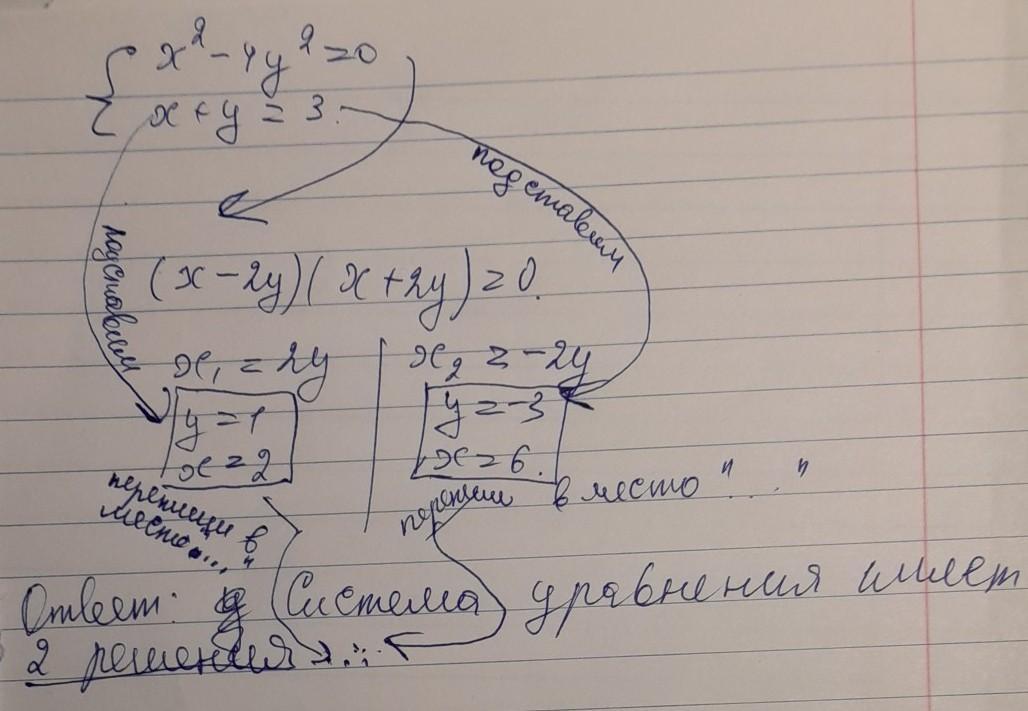 x² - 4y² = 0
x + y = 3.
подставим
подставим
(x - 2y)(x + 2y) = 0.
x₁ = 2y
x₂ = -2y
y = 1
x = 2
y = -3
x = 6.
перепиши в
место "..."
перепиши в место "..."
Ответ: Система уравнения имеет
2 решения ...